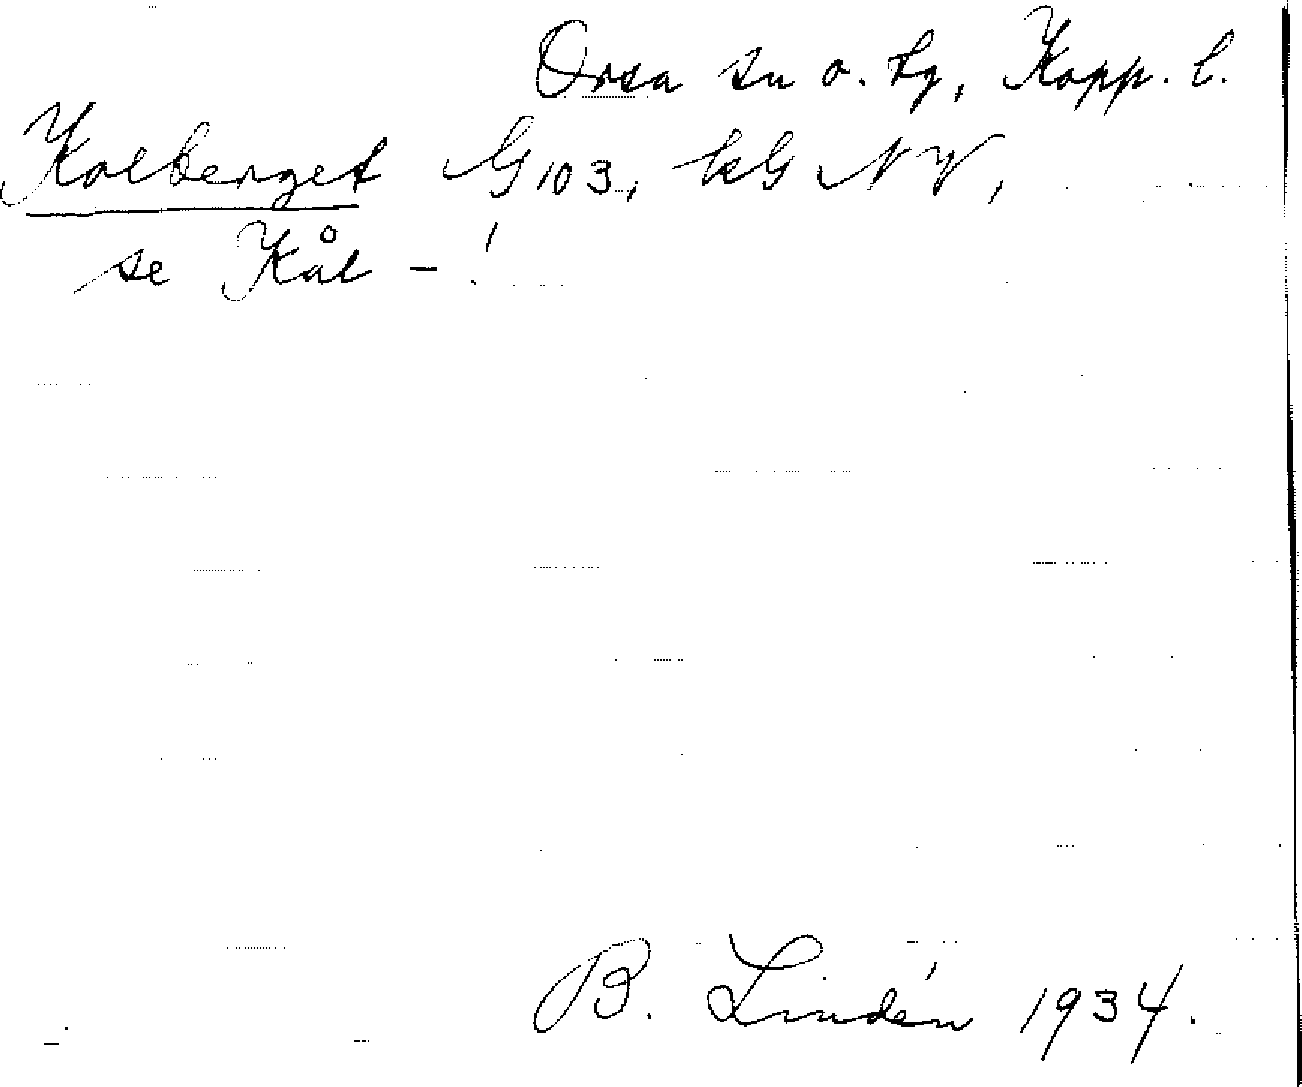 Orsa sn o. tg, Kopp. l.
Kolberget G 103, kG NV,
se Kål - !
B. Lindén 1934.